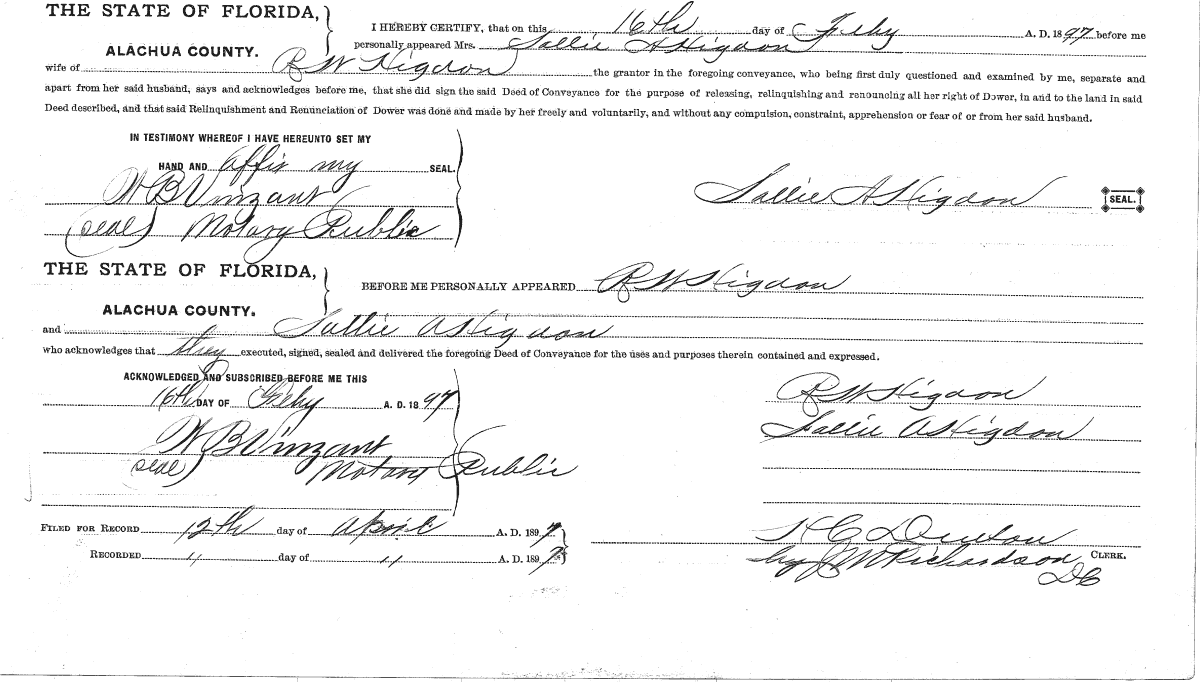 THE STATE OF FLORIDA,
ALACHUA COUNTY.
I HEREBY CERTIFY, that on this 16th day of Feby A. D. 1897 before me
personally appeared Mrs. Sallie A Higdon
wife of R W Higdon the grantor in the foregoing conveyance, who being first duly questioned and examined by me, separate and
apart from her said husband, says and acknowledges before me, that she did sign the said Deed of Conveyance for the purpose of releasing, relinquishing and renouncing all her right of Dower, in and to the land in said
Deed described, and that said Relinquishment and Renunciation of Dower was done and made by her freely and voluntarily, and without any compulsion, constraint, apprehension or fear of or from her said husband.
IN TESTIMONY WHEREOF I HAVE HEREUNTO SET MY
HAND AND affix my SEAL.
W B Vinzant
(seal) Notary Public
Sallie A Higdon SEAL.
THE STATE OF FLORIDA,
ALACHUA COUNTY.
BEFORE ME PERSONALLY APPEARED R W Higdon
and Sallie A Higdon
who acknowledges that they executed, signed, sealed and delivered the foregoing Deed of Conveyance for the uses and purposes therein contained and expressed.
ACKNOWLEDGED AND SUBSCRIBED BEFORE ME THIS
16th DAY OF Feby A. D. 1897
W B Vinzant
(seal) Notary Public
R W Higdon
Sallie A Higdon
FILED FOR RECORD 12th day of April A. D. 1897
RECORDED 11 day of 11 A. D. 1897
H C Denton
CLERK.
by J M Richardson
DC